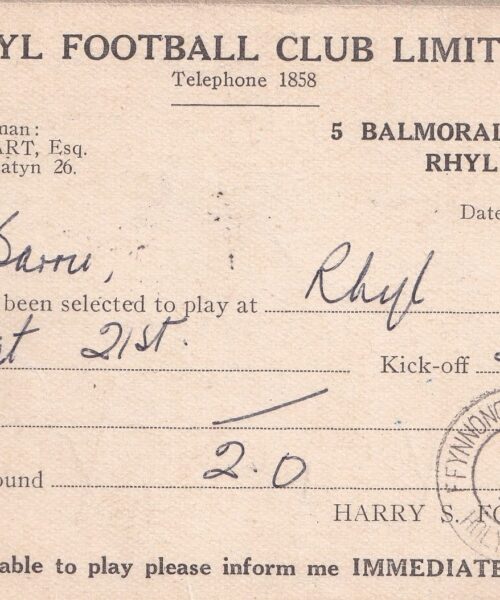 YL FOOTBALL CLUB LIMIT
Telephone 1858
man:
ART, Esq.
atyn 26.
5 BALMORAL
RHYL
Date
Barry,
been selected to play at Rhyl
at 21st.
Kick-off
ound 2.0
HARRY S. FO
able to play please inform me IMMEDIATE
FFYNNONG